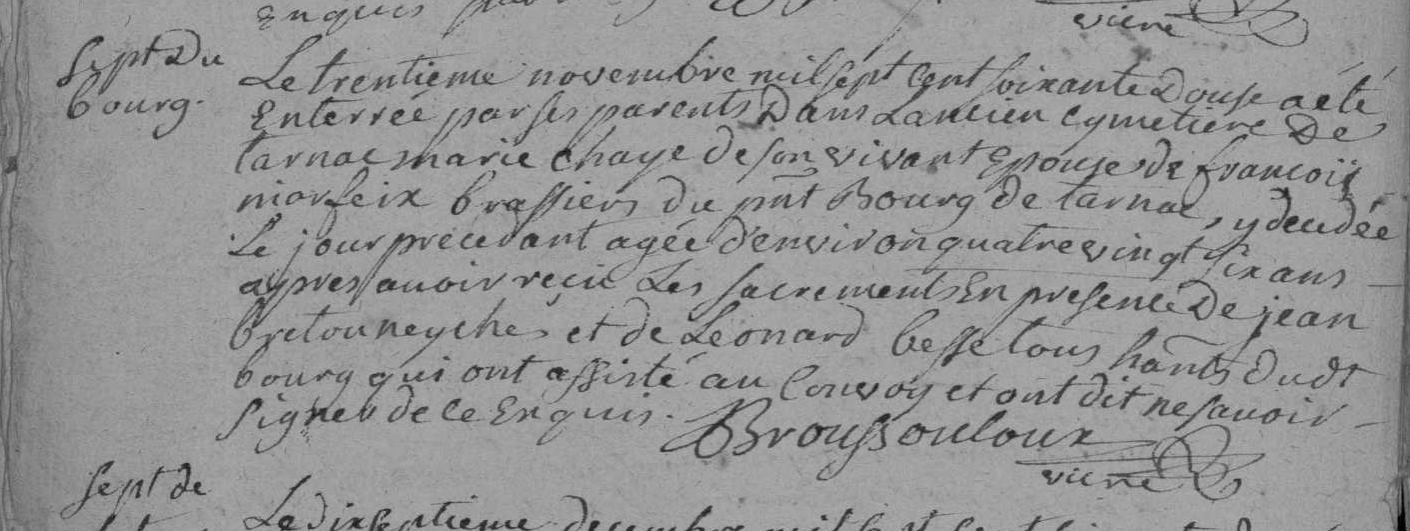 Enquis
vicre
Sept Du
bourg.
Le trentieme novembre mil sept cent soixante Douse a été
Enterrée par ses parents Dans Lancien Cymetiere De
tarnac marie chaye de son vivant Epouse de francois
marfeix brassiers du pnt Bourg de tarnac, y decedée
Le jour precedant agée d'environ quatre vingt six ans
aypres avoir reçu Les sacrements En presence De jean
bretouneyche et de Leonard besse tous hants dudt
bourg qui ont assisté au Convoy et ont dit ne savoir
signer de ce Enquis. Broussouloux
vicre
Sept de
Le dixseptieme decembre mil sept cent